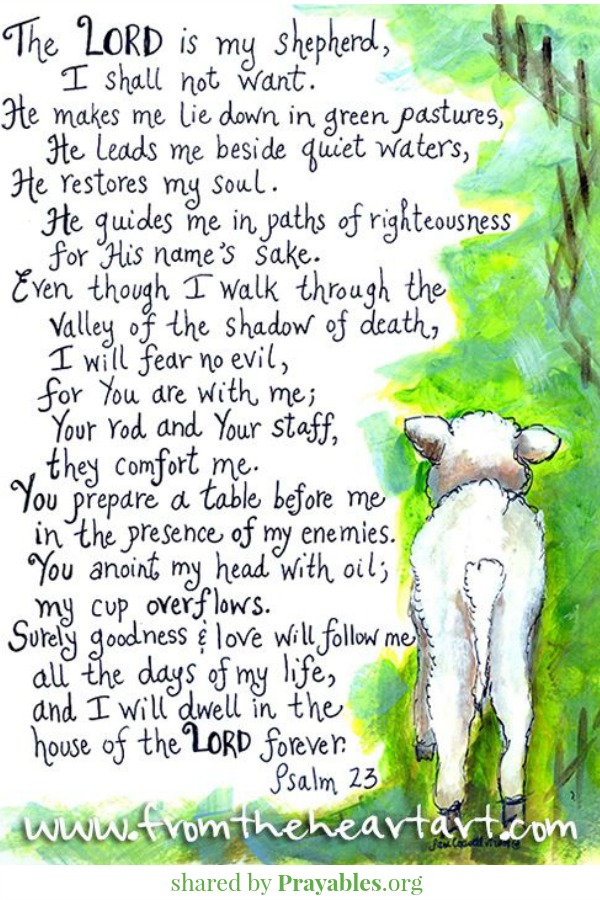 The LORD is my shepherd,
I shall not want.
He makes me lie down in green pastures,
He leads me beside quiet waters,
He restores my soul.
He guides me in paths of righteousness
for His name's sake.
Even though I walk through the
valley of the shadow of death,
I will fear no evil,
for You are with me;
Your rod and Your staff,
they comfort me.
You prepare a table before me
in the presence of my enemies.
You anoint my head with oil;
my cup overflows.
Surely goodness & love will follow me
all the days of my life,
and I will dwell in the
house of the LORD forever.
Psalm 23
www.fromtheheartart.com
shared by Prayables.org